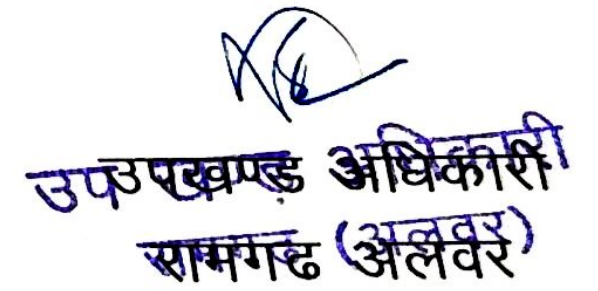 उपखण्ड अधिकारी
रामगढ (अलवर)